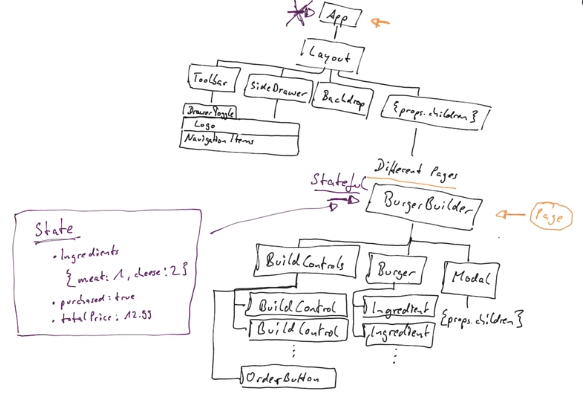 App
Layout
Toolbar
SideDrawer
Backdrop
{props.children}
DrawerToggle
Logo
Navigation Items
Different Pages
Stateful
BurgerBuilder
Page
State
• Ingredients
{meat: 1, cheese: 2}
• purchased: true
• totalPrice: 12.99
BuildControls
Burger
Modal
BuildControl
Ingredient
{props.children}
BuildControl
Ingredient
OrderButton